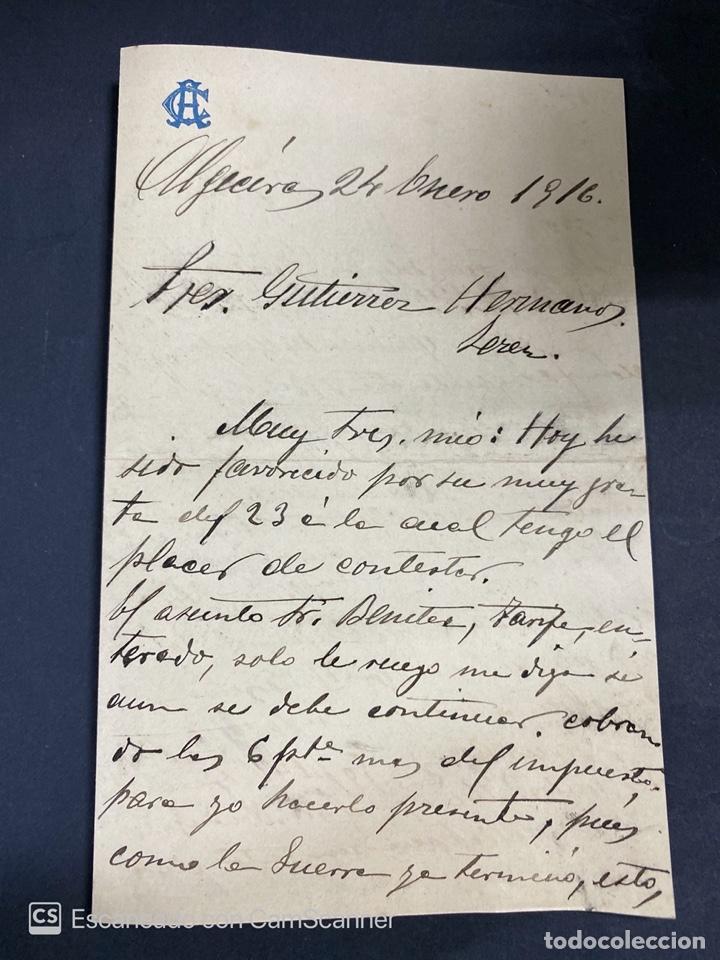 Algeciras 24 Enero 1916.
Sres. Gutierrez Hermanos.
Jerez.
Muy Sres. mio: Hoy he
sido favorecido por su muy gra-
ta del 23 á la cual tengo el
placer de contestar.
El asunto Sr. Benitez, Tarifa, en-
terado, solo le ruego me diga si
aun se debe continuar cobran
do las 6 pts mas del impuesto,
para yo hacerlo presente, pues
como la Guerra ya terminó, esto,
CS Escaneado con CamScanner
todocoleccion